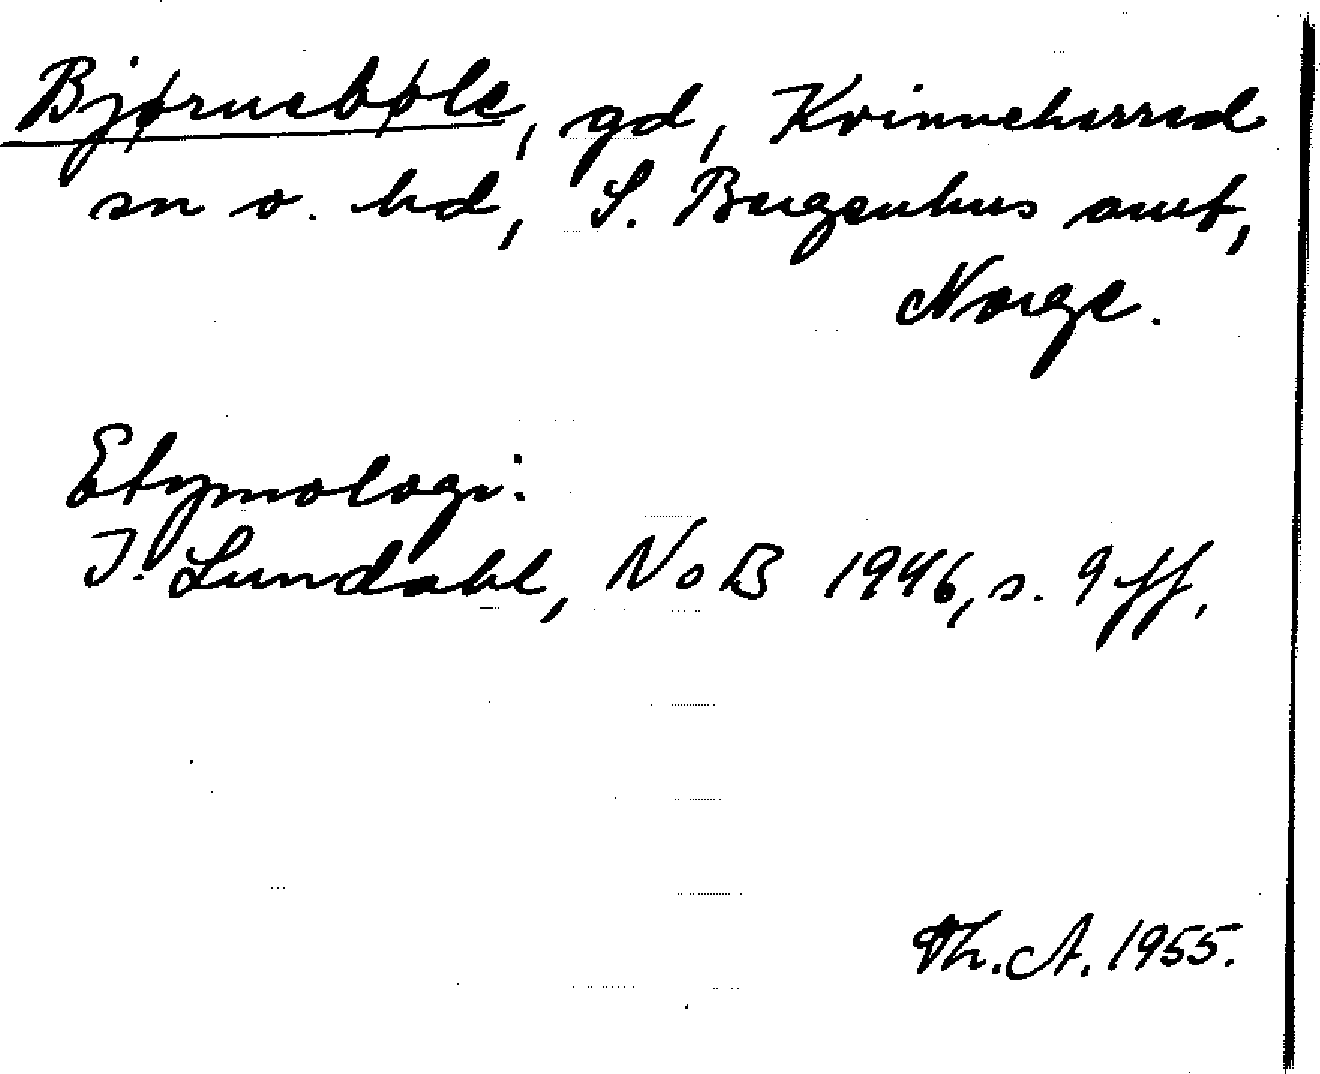 Bjørnebøle, gd, Kvinneherred
sn o. hd, S. Bergenhus amt,
Norge.
Etymologi:
I. Lundahl, NoB 1946, s. 9 ff.
Th. A. 1955.